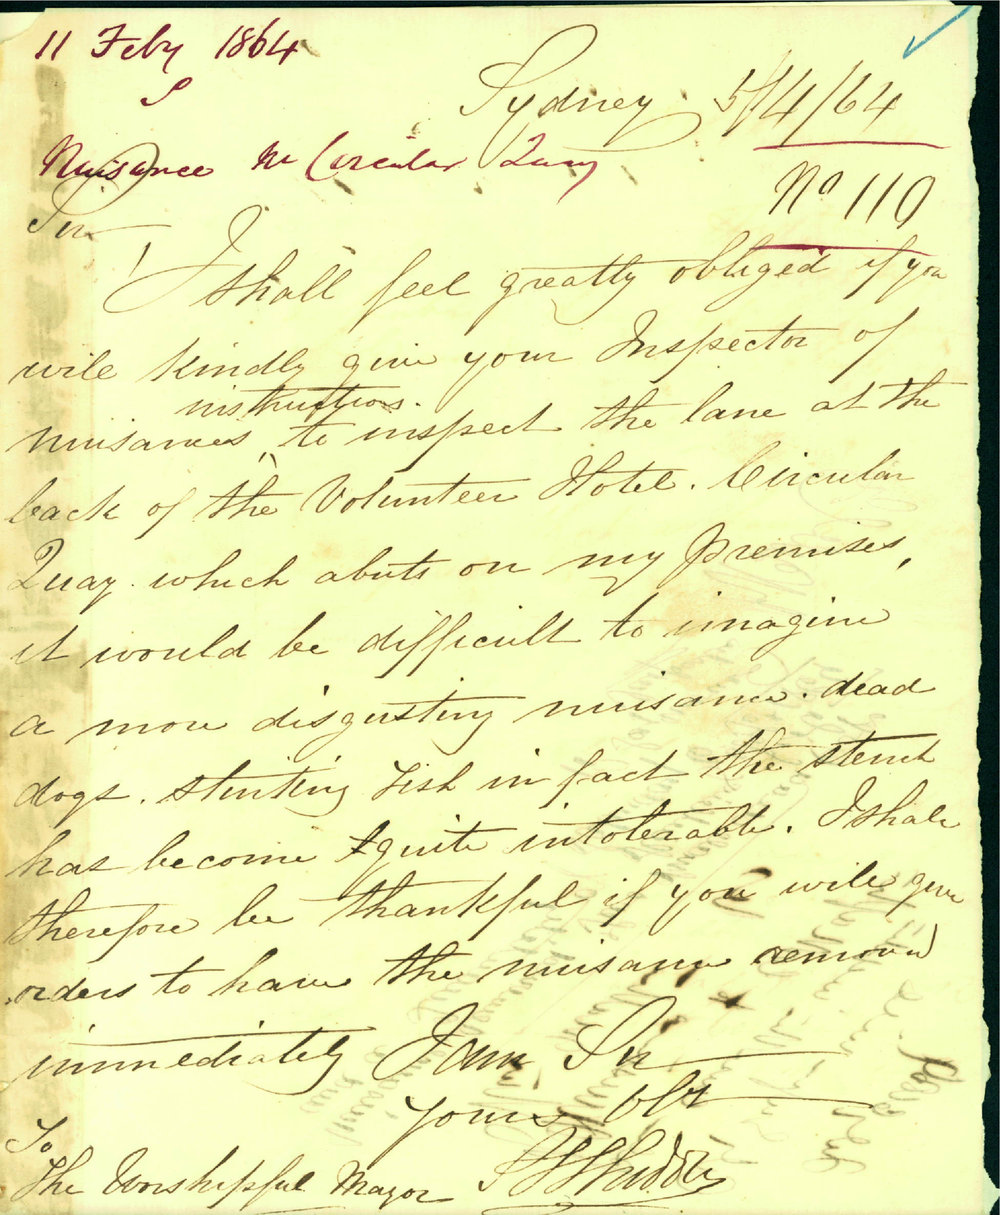 11 Feby 1864
Sydney 5/4/64
Nuisance nr Circular Quay
No 110
Sir
I shall feel greatly obliged if you
will kindly give your Inspector of
instructions.
nuisances, to inspect the lane at the
back of the Volunteer Hotel. Circular
Quay. which abuts on my premises,
it would be difficult to imagine
a more disgusting nuisance. dead
dogs. stinking fish in fact the stench
has become quite intolerable. I shall
therefore be thankful if you will give
orders to have the nuisance removed
immediately I am Sir
yours obt
To
The Worshipful Mayor